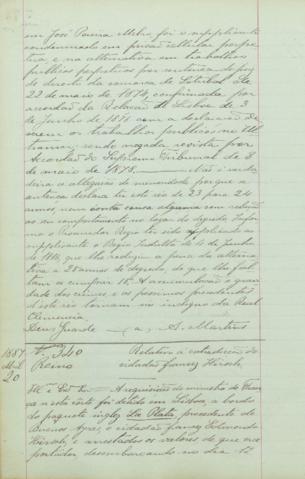 em José Pereira Mello foi o supplicante
condemnado em prisão cellular perpe
tua e na alternativa em trabalhos
publicos perpetuos por sentença do juiz
de direito da comarca de Setubal de
22 de maio de 1874, confirmada por
accordão da Relação de Lisboa de 3
de Junho de 1871 com a declaração de
serem os trabalhos publicos no Ul
tramar, sendo negada revista por
Accordão do Supremo Tribunal de 8
de maio de 1875. Não é verda
deira a allegação de menoridade porque a
sentença declara ter este reo de 23 para 24
annos, nem consta cousa alguma com relação
ao seu comportamento no logar do degredo. Infor
ma o Procurador Regio ter sido applicado ao
supplicante o Regio Indulto de 4 de Junho
de 1886 que lhe reduziu a pena da alterna
tiva a 25 annos de degredo, do que lhe fal
tam a cumprir 15. A accumulação e gravi
dade dos crimes e os pessimos precedentes
d'este réo tornam-no indigno da Real
Clemencia.
Deus Guarde (a) S. Martins
1887
Abril
20
Nº 340
Reino
Relativo á extradicção do
cidadão francez Hirsch.
Illmo e Exmo Snr A requisição do ministro de Fran
ça n'esta côrte foi detido em Lisboa, a bordo
do paquete inglez La Plata, procedente de
Buenos Ayres, o cidadão francez Edmundo
Hirsch, e arrestados os valores de que era
portador, desembarcando no dia 12